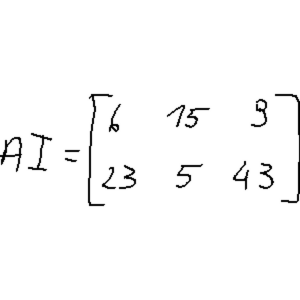 AI = [6 15 9
23 5 43]